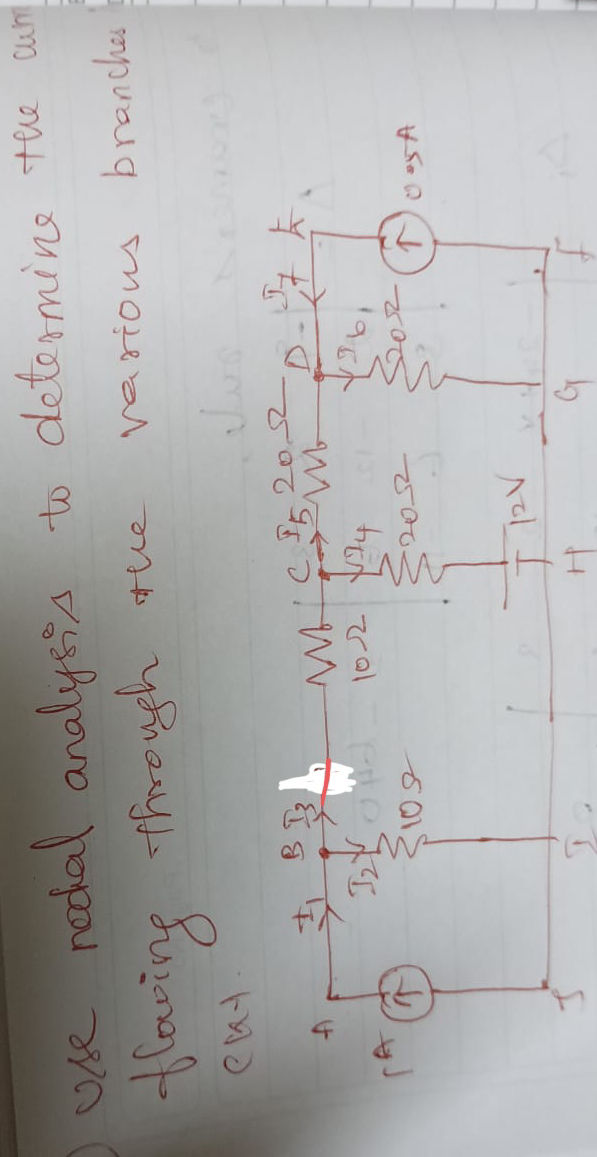 use nodal analysis to determine the
flowing through the various branches
CKt.
A I1 B I3 C I5 20Ω D I7
10Ω
1A I2 10Ω I4 20Ω I6 20Ω 0.5A
12V
J I H G F